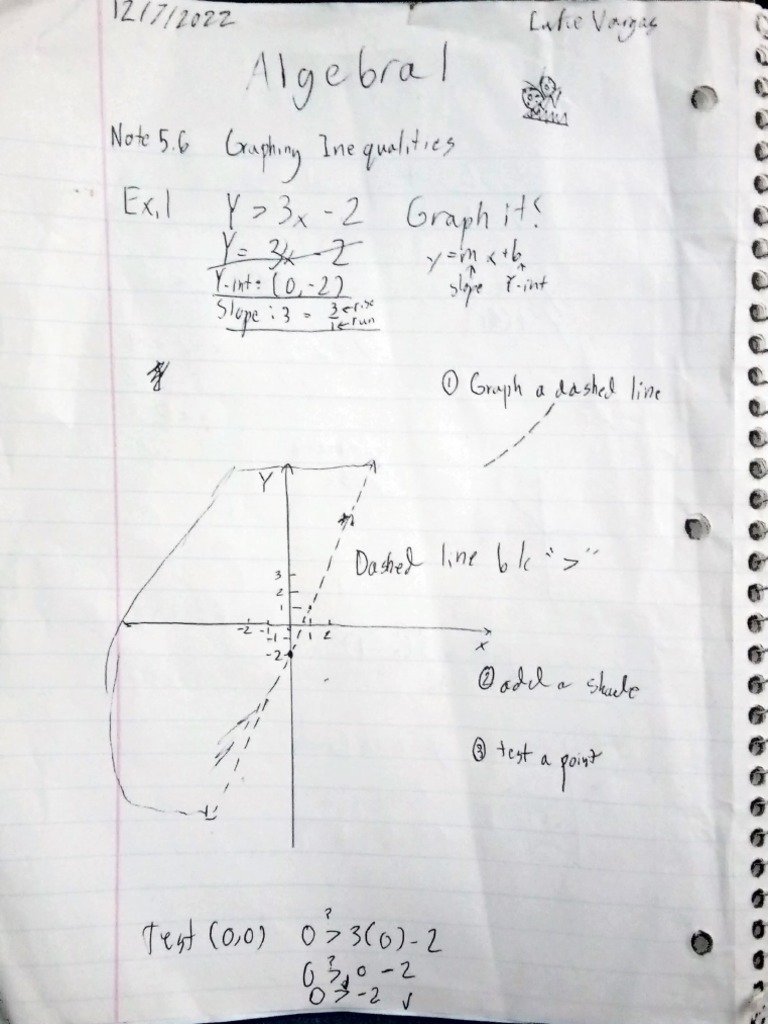 12/7/2022 Luke Vargas
Algebra 1
Note 5.6 Graphing Inequalities
Ex.1 Y > 3x - 2 Graph it!
Y = 3x - 2 y = mx + b
Y-int: (0, -2) slope Y-int
Slope: 3 = 3/1 ← rise ← run
① Graph a dashed line
Y
Dashed line b/c ">"
3
2
1
-2 -1 1 2
-1
x
-2
② add a shade
③ test a point
Test (0,0) 0 ?> 3(0) - 2
0 ?> 0 - 2
0 > -2 ✓